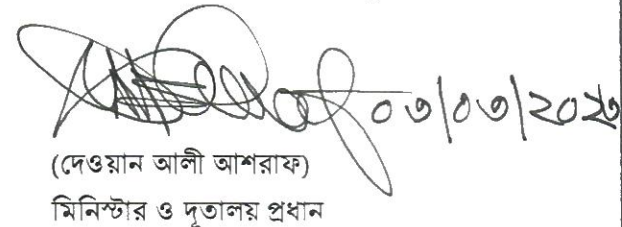 ০৩/০৩/২০২৬
(দেওয়ান আলী আশরাফ)
মিনিস্টার ও দূতালয় প্রধান